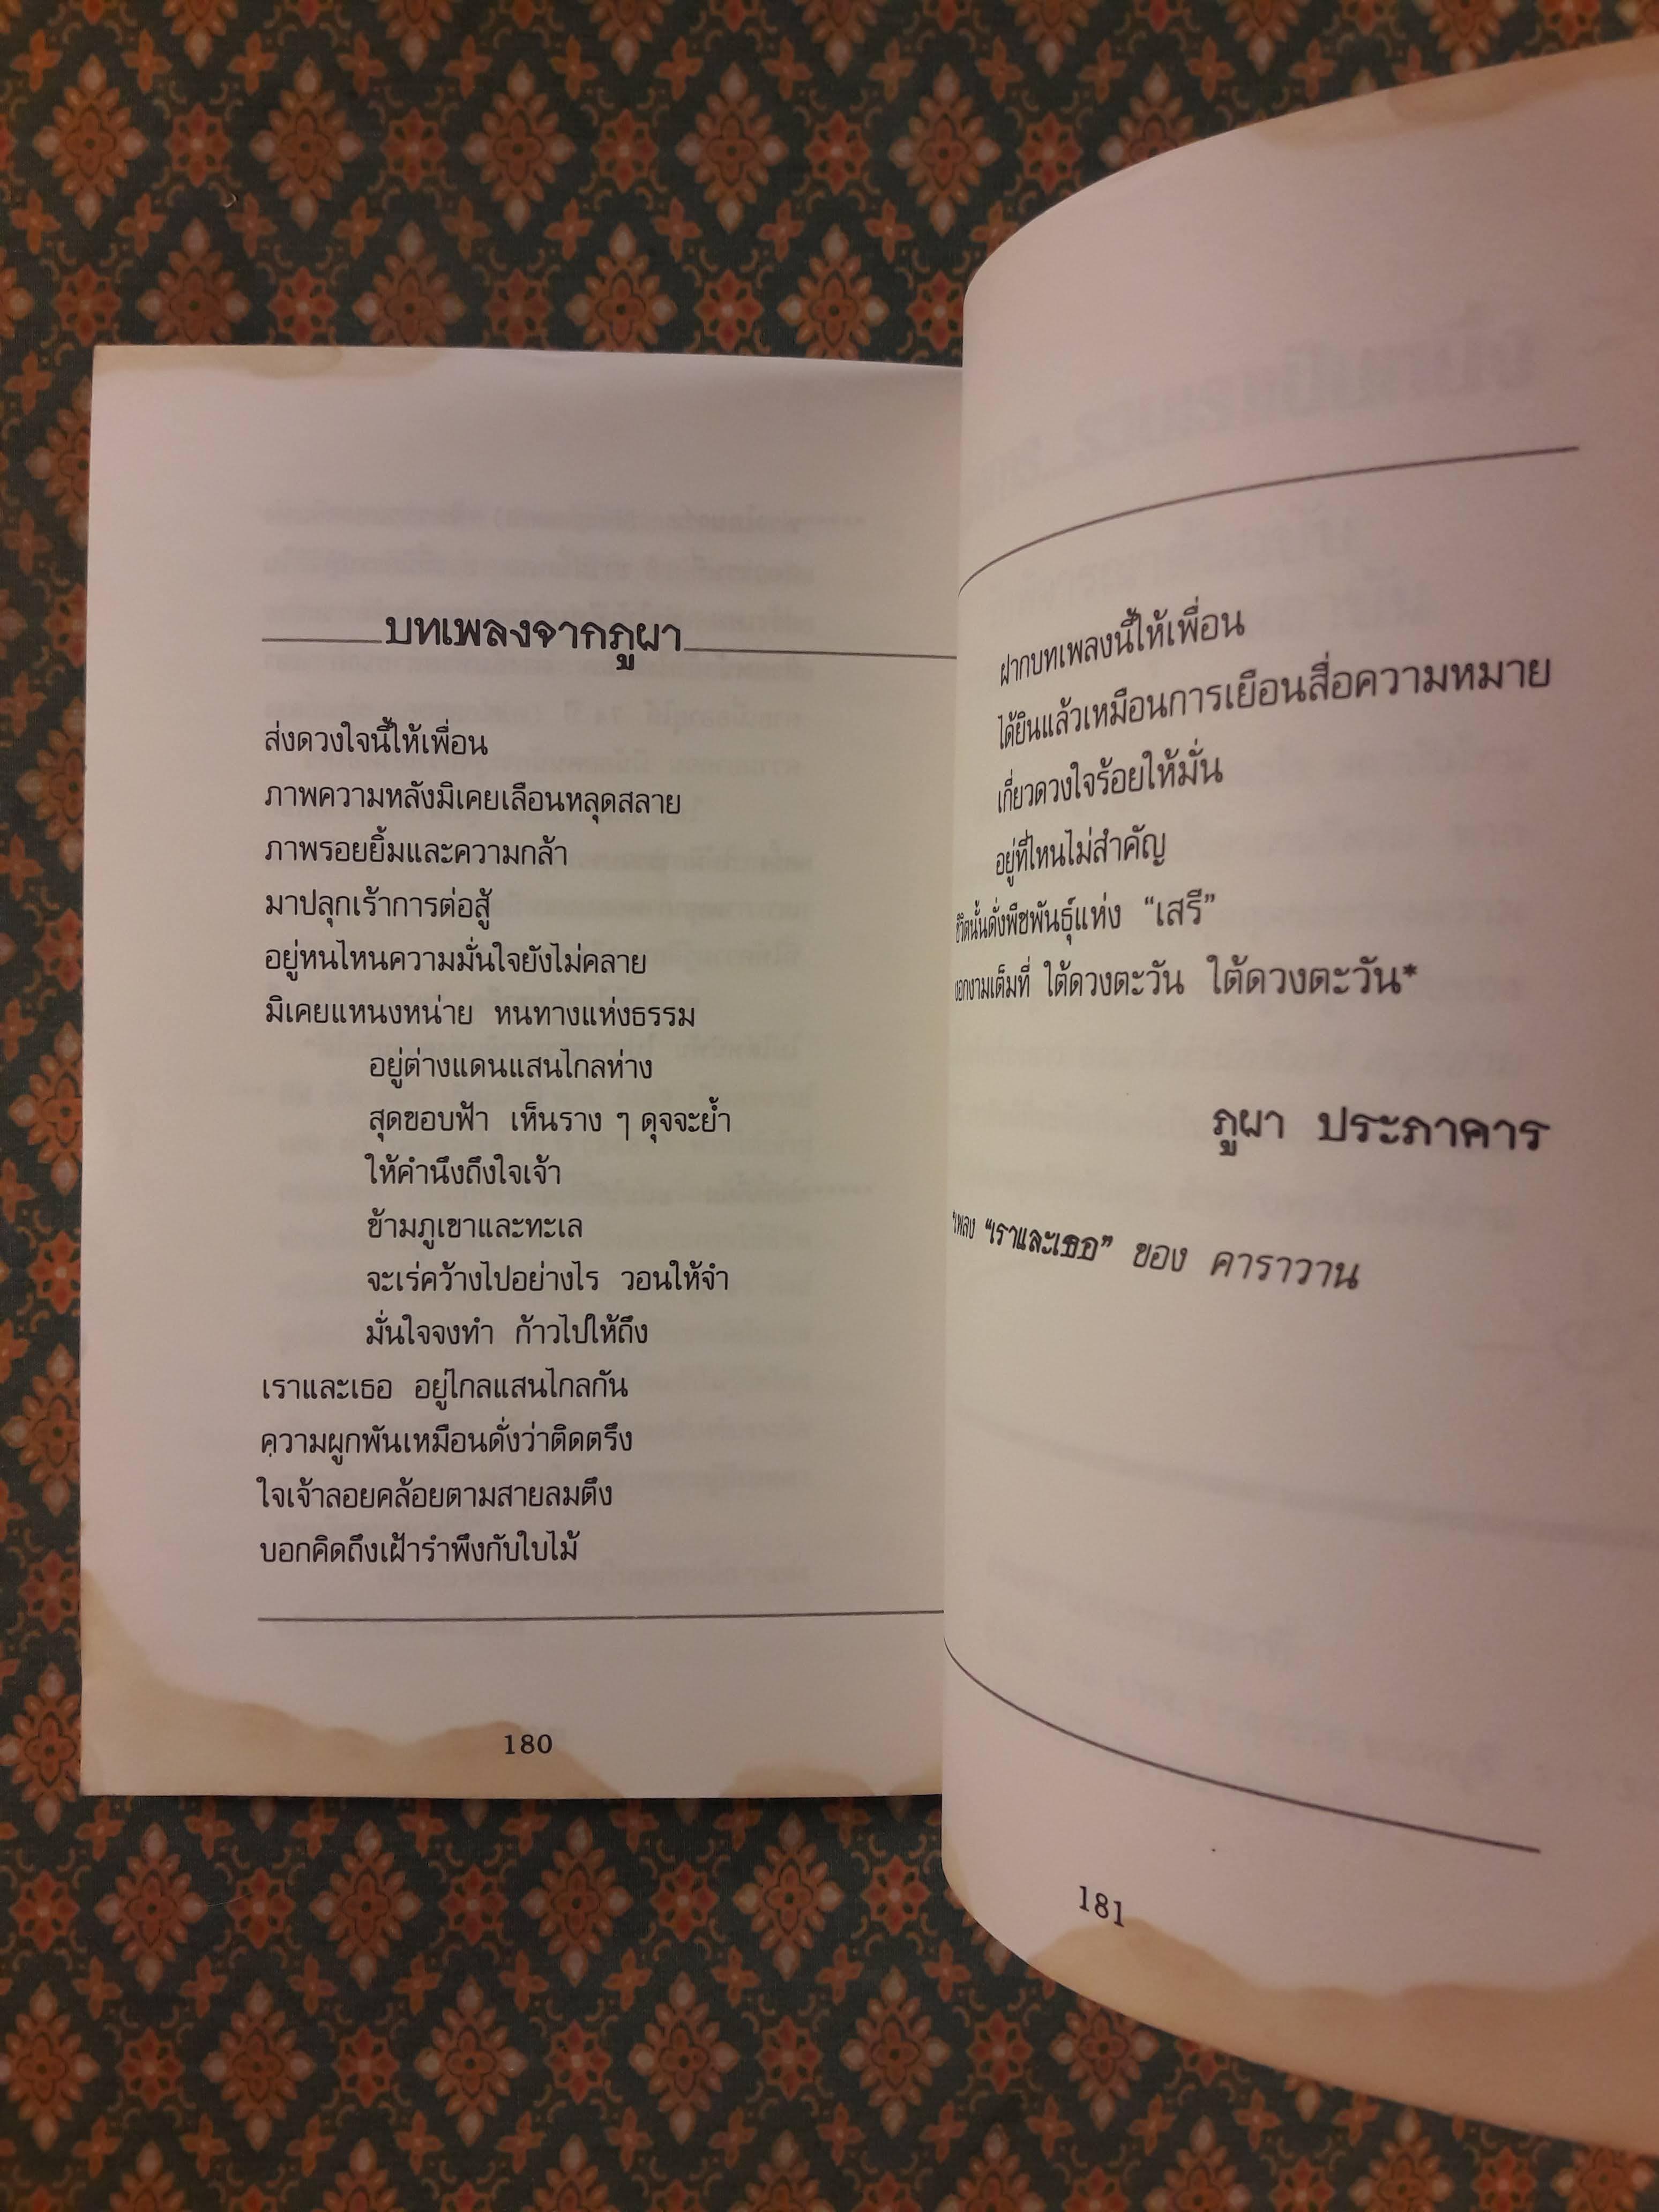 บทเพลงจากภูผา
ส่งดวงใจนี้ให้เพื่อน
ภาพความหลังมิเคยเลือนหลุดสลาย
ภาพรอยยิ้มและความกล้า
มาปลุกเร้าการต่อสู้
อยู่หนไหนความมั่นใจยังไม่คลาย
มิเคยแหนงหน่าย หนทางแห่งธรรม
อยู่ต่างแดนแสนไกลห่าง
สุดขอบฟ้า เห็นราง ๆ ดุจจะย้ำ
ให้คำนึงถึงใจเจ้า
ข้ามภูเขาและทะเล
จะเร่คว้างไปอย่างไร วอนให้จำ
มั่นใจจงทำ ก้าวไปให้ถึง
เราและเธอ อยู่ไกลแสนไกลกัน
ความผูกพันเหมือนดั่งว่าติดตรึง
ใจเจ้าลอยคล้อยตามสายลมตึง
บอกคิดถึงเฝ้ารำพึงกับใบไม้
180
ฝากบทเพลงนี้ให้เพื่อน
ได้ยินแล้วเหมือนการเยือนสื่อความหมาย
เกี่ยวดวงใจร้อยให้มั่น
อยู่ที่ไหนไม่สำคัญ
ชีวิตนั้นดั่งพืชพันธุ์แห่ง “เสรี”
งอกงามเต็มที่ ใต้ดวงตะวัน ใต้ดวงตะวัน*
ภูผา ประภาคาร
*เพลง “เราและเธอ” ของ คาราวาน
181